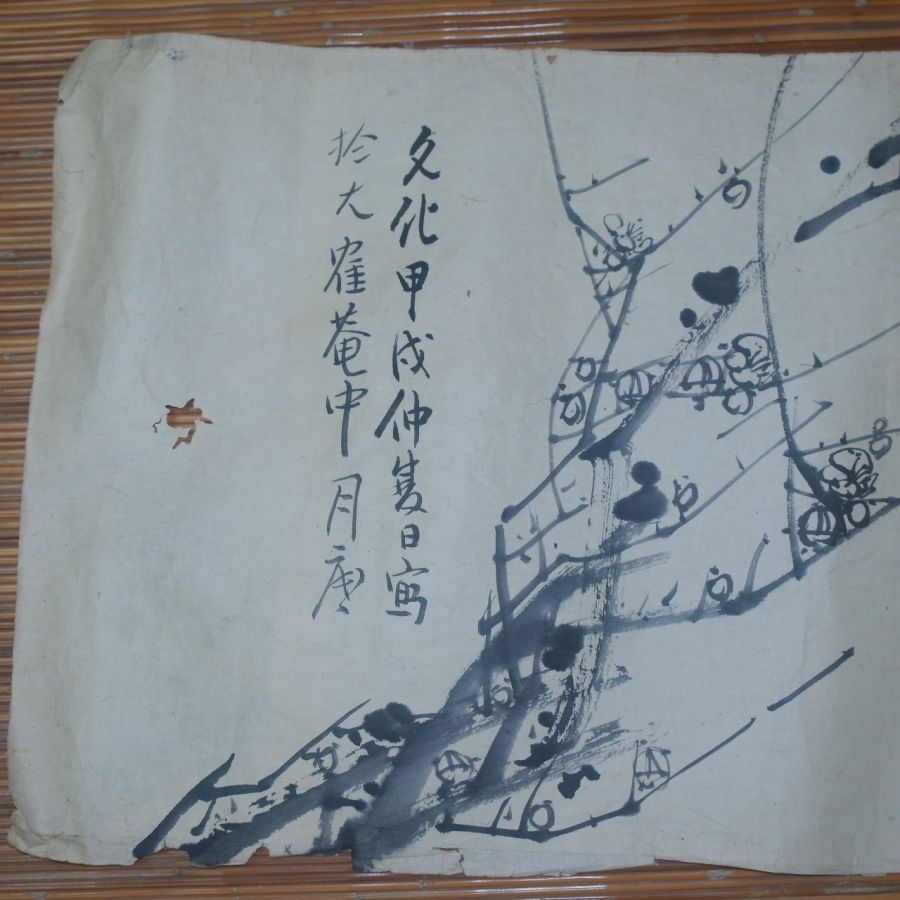 文化甲戌仲夏日寫
於大寉菴中月